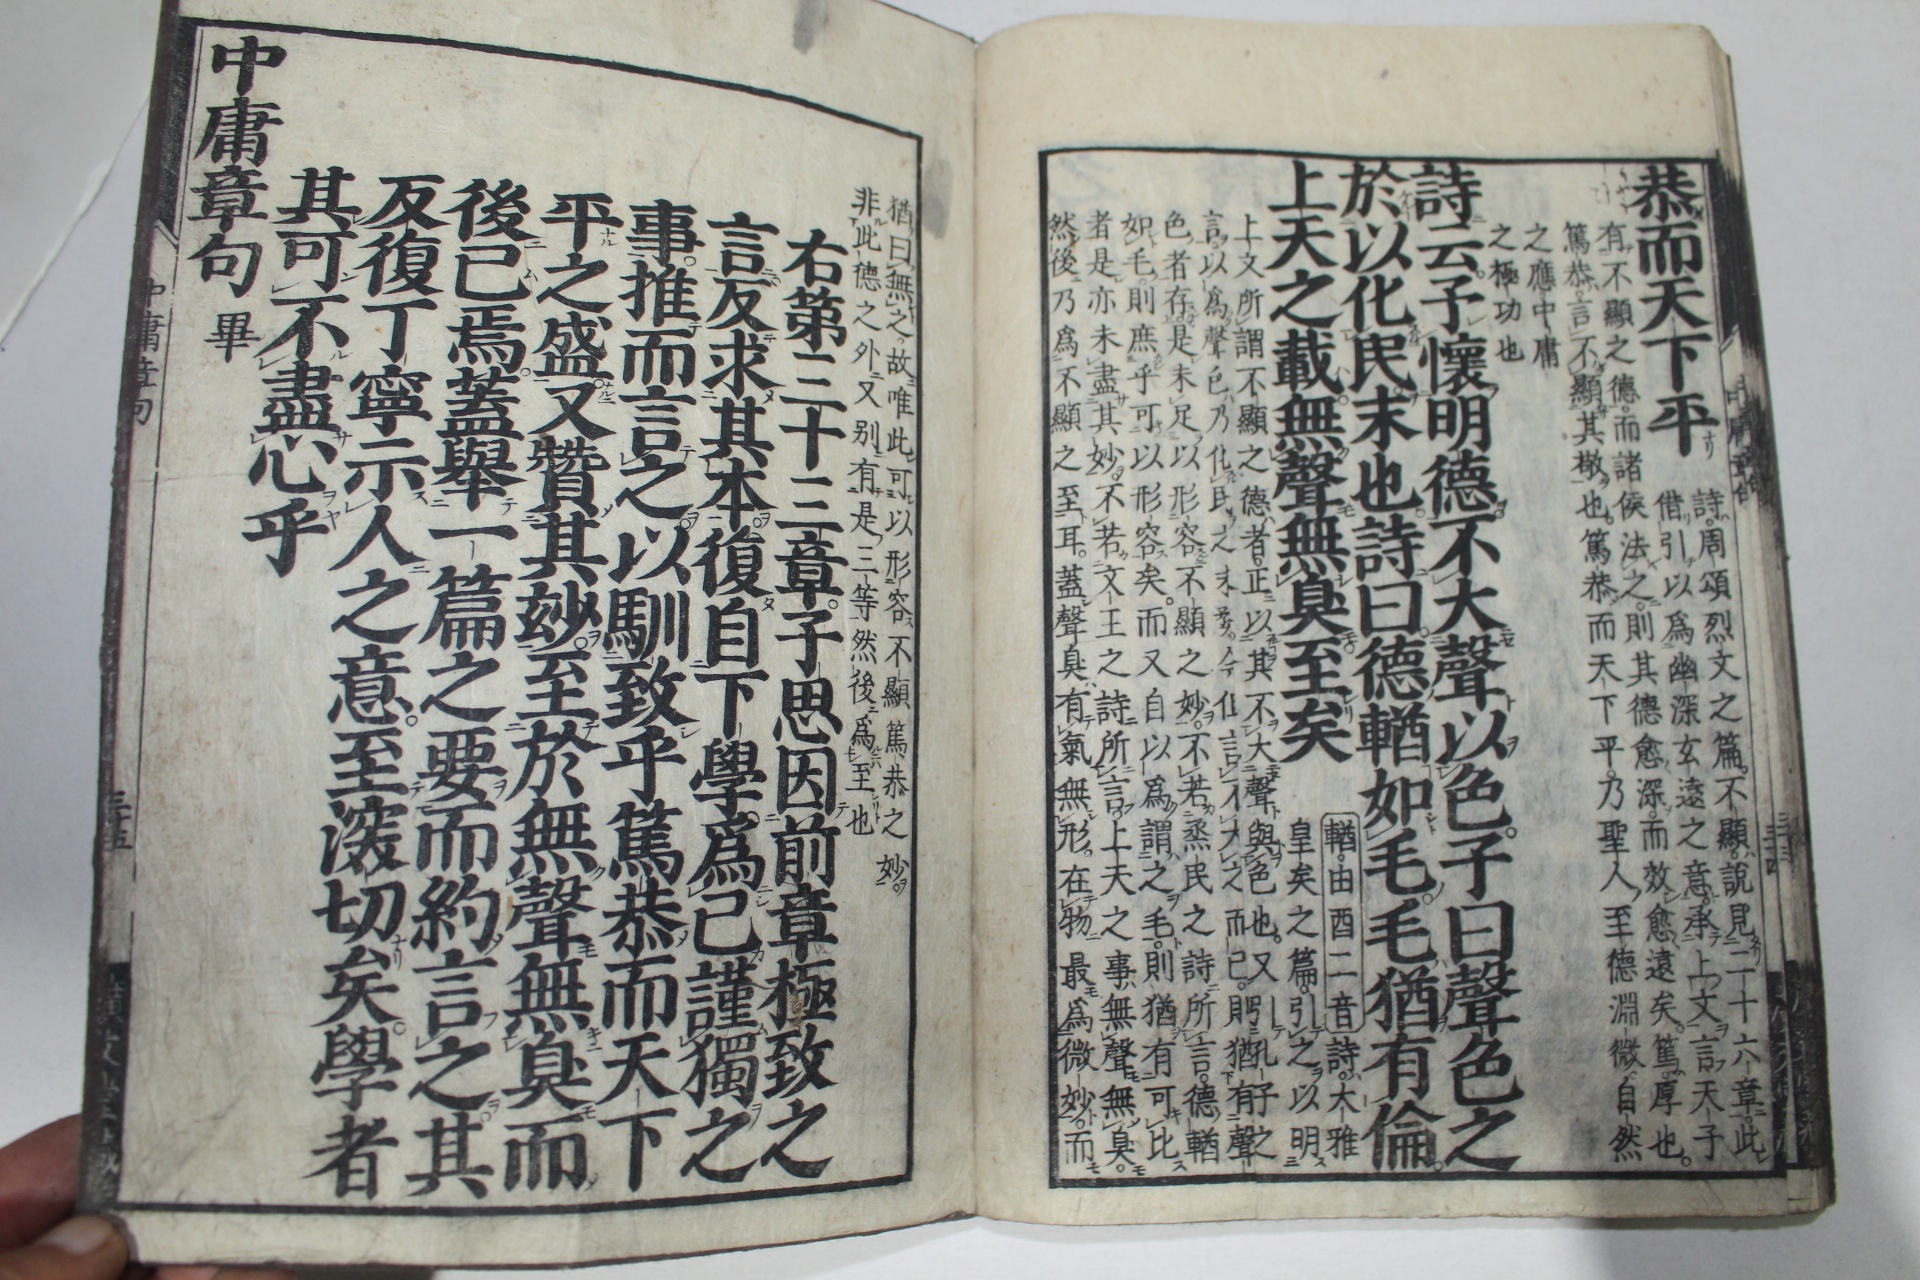 恭而天下平
詩周頌烈文之篇不顯説見二十六章此
借引以爲幽深玄遠之意承上文言天子
有不顯之德而諸侯法之則其德愈深而效愈遠矣篤厚也
篤恭言不顯其敬也篤恭而天下平乃聖人至德淵微自然
之應中庸
之極功也
詩云予懷明德不大聲以色子曰聲色之
於以化民末也詩曰德輶如毛毛猶有倫
上天之載無聲無臭至矣
輶由酉二音
詩大雅
皇矣之篇引之以明
上文所謂不顯之德者正以其不大聲與色也又引孔子之
言以爲聲色乃化民之末務今但言不大之而已則猶有聲
色者存是未足以形容不顯之妙不若烝民之詩所言德輶
如毛則庶乎可以形容矣而又自以爲謂之毛則猶有可比
者是亦未盡其妙不若文王之詩所言上天之事無聲無臭
然後乃爲不顯之至耳蓋聲臭有氣無形在物最爲微妙而
猶曰無之故唯此可以形容不顯篤恭之妙
非此德之外又别有是三等然後爲至也
右第三十三章子思因前章極致之
言反求其本復自下學爲己謹獨之
事推而言之以馴致乎篤恭而天下
平之盛又贊其妙至於無聲無臭而
後已焉蓋舉一篇之要而約言之其
反復丁寧示人之意至深切矣學者
其可不盡心乎
中庸章句畢
中庸章句
三十五